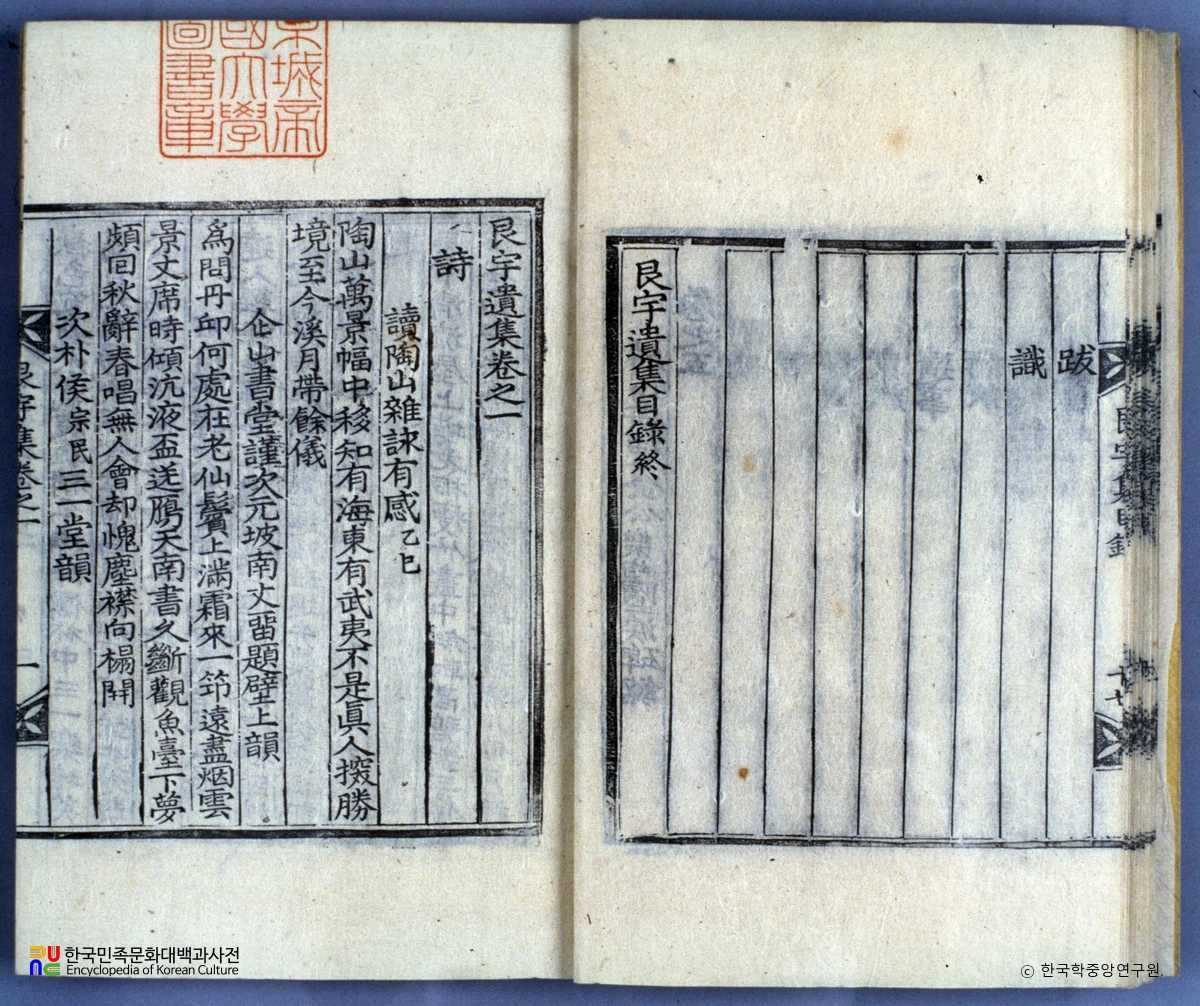 跋
識
艮宇遺集目錄終
艮宇集目錄
十七
京城帝
國大學
圖書章
艮宇遺集卷之一
詩
讀陶山雜詠有感乙巳
陶山萬景幅中移知有海東有武夷不是眞人探勝
境至今溪月帶餘儀
企山書堂謹次元坡南丈留題壁上韻
爲問丹丘何處在老仙鬢上滿霜來一笻遠盡烟雲
景丈席時傾沆液盃送鴈天南書久斷觀魚臺下夢
頻回秋辭春唱無人會却愧塵襟向榻開
次朴侯宗民三一堂韻
艮宇集卷之一
一
한국민족문화대백과사전
Encyclopedia of Korean Culture
ⓒ 한국학중앙연구원